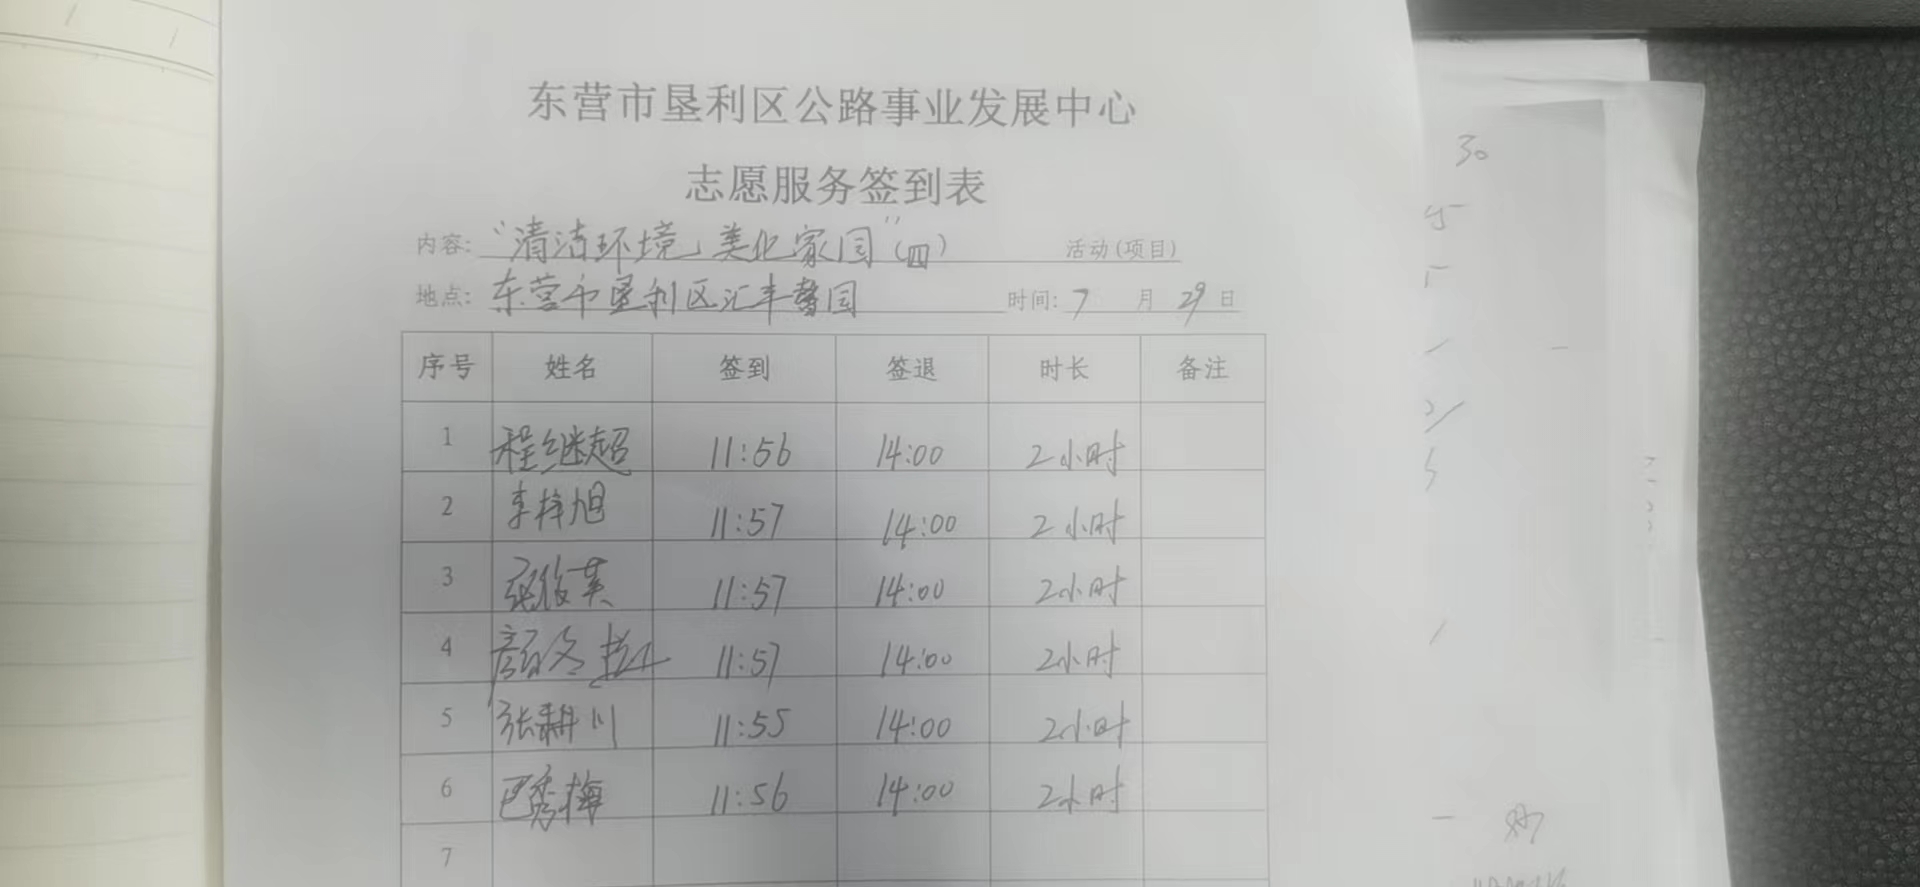 东营市垦利区公路事业发展中心
志愿服务签到表
内容：“清洁环境，美化家园”（四） 活动(项目)
地点：东营市垦利区汇丰馨园 时间：7 月 29 日
序号 姓名 签到 签退 时长 备注
1 程继超 11:56 14:00 2小时
2 李梓旭 11:57 14:00 2小时
3 张俊英 11:57 14:00 2小时
4 11:57 14:00 2小时
5 张耕川 11:55 14:00 2小时
6 巴秀梅 11:56 14:00 2小时
7
30